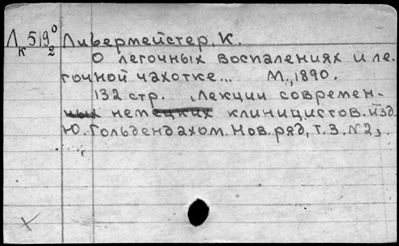 Л 519⁰ Либермейстер, К.
к 2 О легочных воспалениях и ле-
гочной чахотке... М., 1890.
132 стр. Лекции современ-
ных немецких клиницистов. изд.
Ю. Гольдендахом. Нов. ряд, т. 3. №2,.